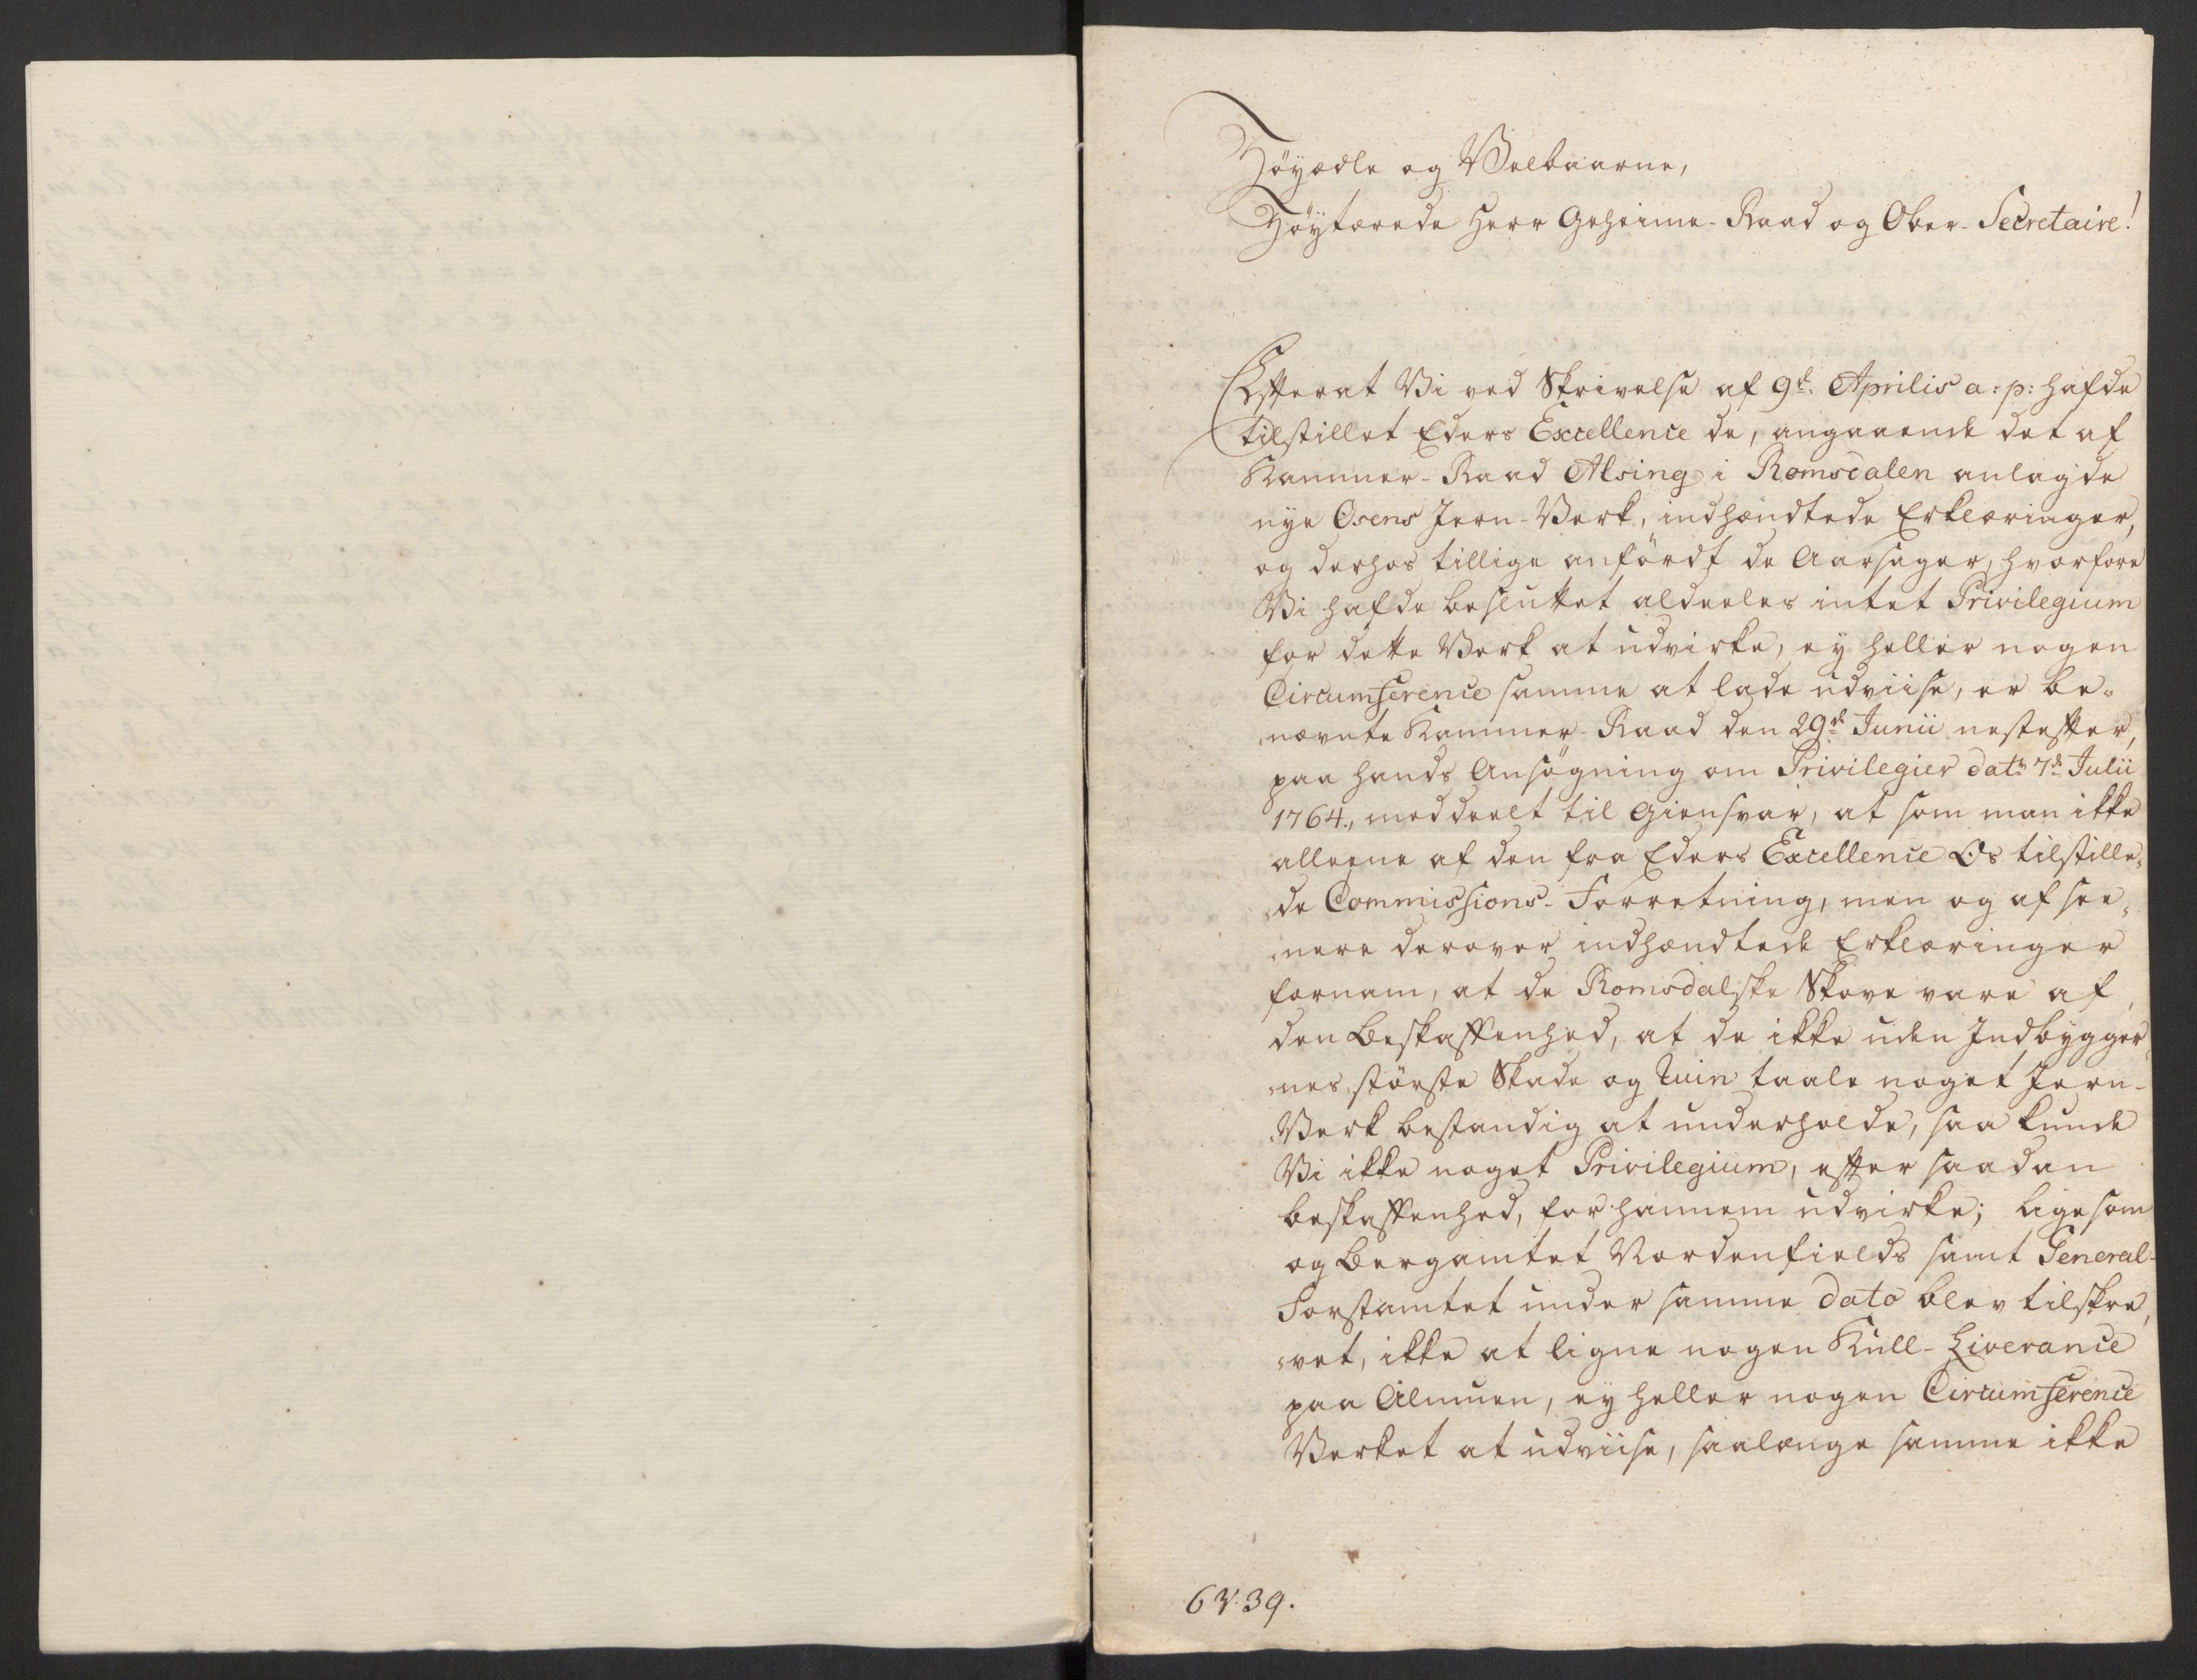 Höyædle og Velbaarne,
Höytærede Herr Geheime-Raad og Ober-Secretaire!
Efterat Vi ved Skrivelse af 9d. Aprilis a: p: hafde
tilstillet Eders Excellence de, angaaende det af
Kammer-Raad Alsing i Romsdalen anlagde
nye Osens Jern-Verk, indhændtede Erklæringer,
og derhos tillige anfördt de Aarsager, hvorfore
Vi hafde besluttet aldeeles intet Privilegium
for dette Verk at udvirke, ey heller nogen
Circumference samme at lade udviise, er be-
nævnte Kammer-Raad den 29d Junii nestefter,
paa hands Ansögning om Privilegier dat: 7d Julii
1764., meddeelt til Giensvar, at som man ikke
alleene af den fra Eders Excellence Os tilstille-
de Commissions-Forretning, men og af see-
nere derover indhændtede Erklæringer
fornam, at de Romsdalske Skove vare af
den Beskaffenhed, at de ikke uden Indbygger-
nes störste Skade og Ruin taale noget Jern-
Verk bestandig at underholde, saa kunde
Vi ikke noget Privilegium, efter saadan
beskaffenhed, for hannem udvirke; ligesom
og Bergamtet Nordenfields samt General-
Forstamtet under samme dato blev tilskre-
vet, ikke at ligne nogen Kull-Liverance
paa Almuen, ey heller nogen Circumference
Verket at udviise, saalænge samme ikke